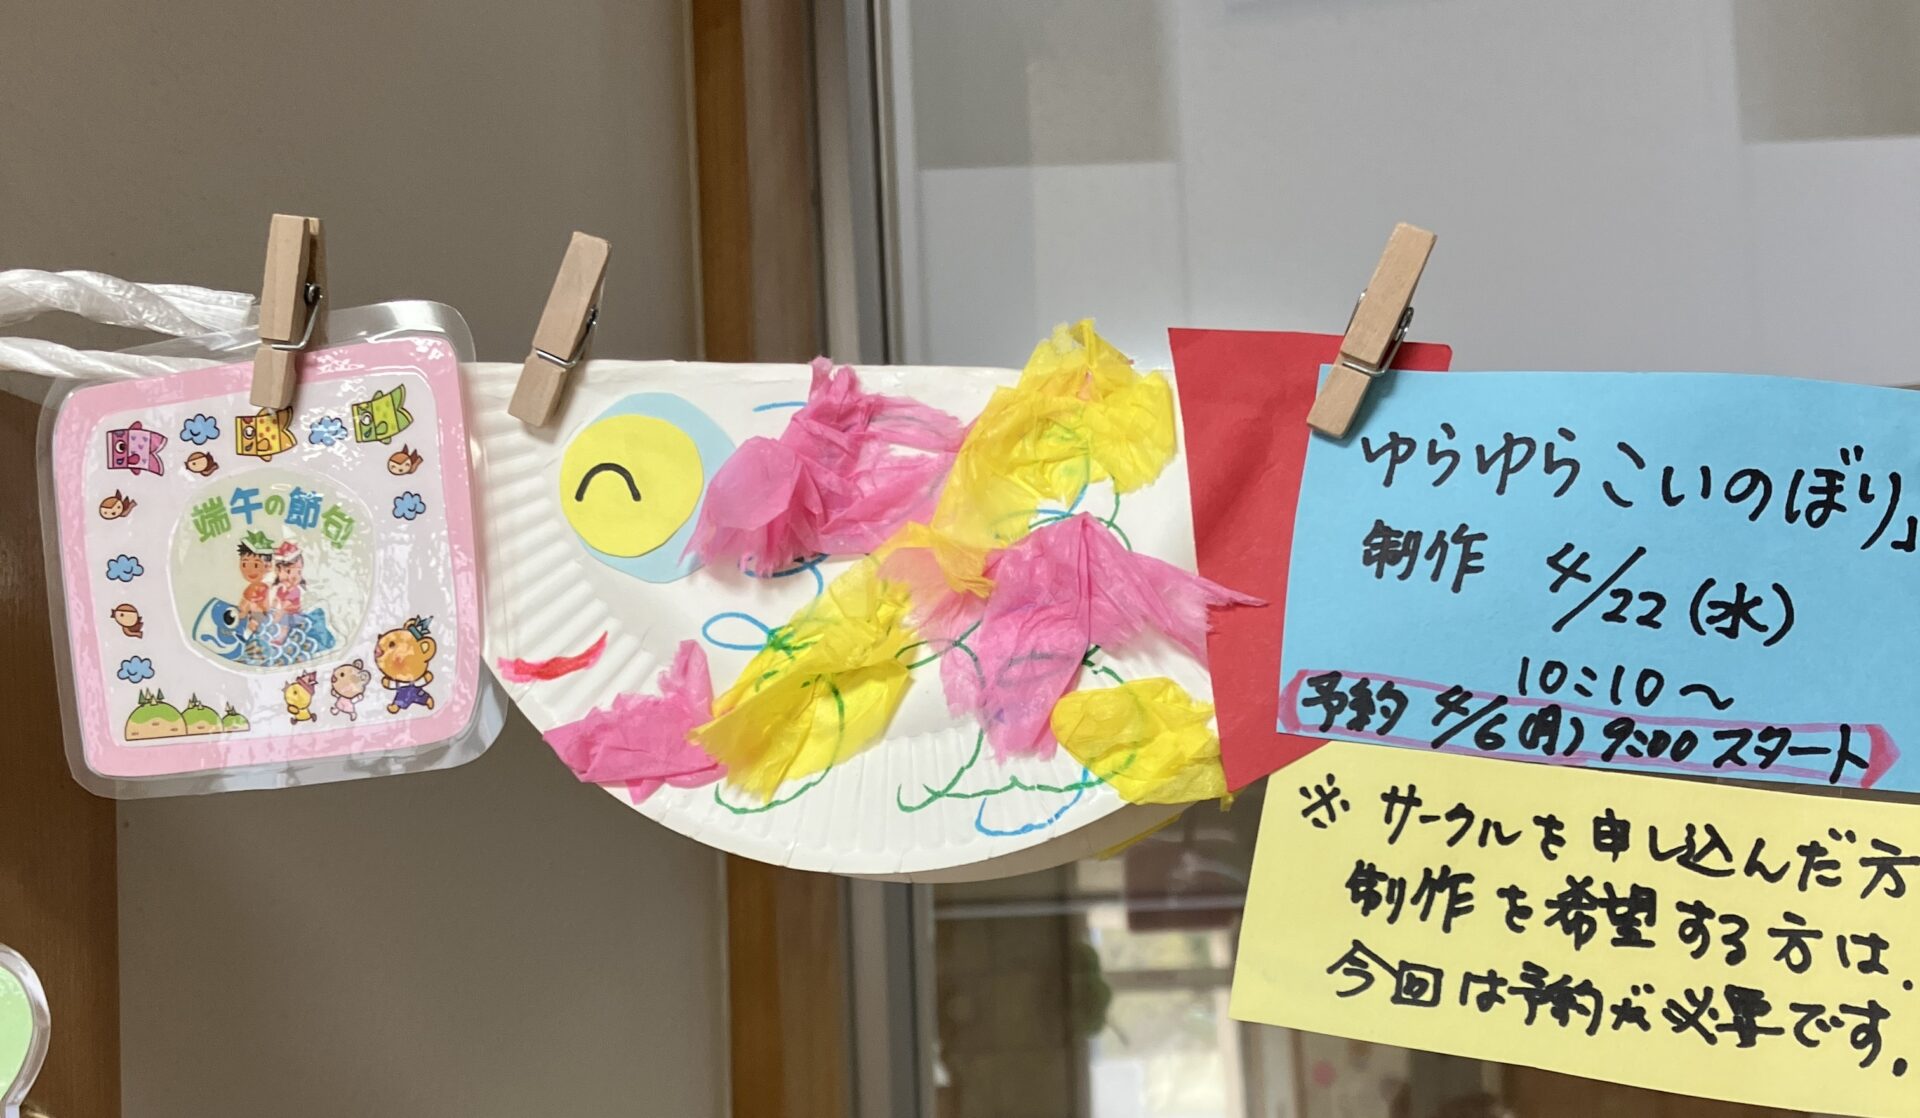 端午の節句
ゆらゆらこいのぼり」
制作 4/22(水)
10:10～
予約 4/6(月) 9:00スタート
※ サークルを申し込んだ方
制作を希望する方は.
今回は予約が必要です.